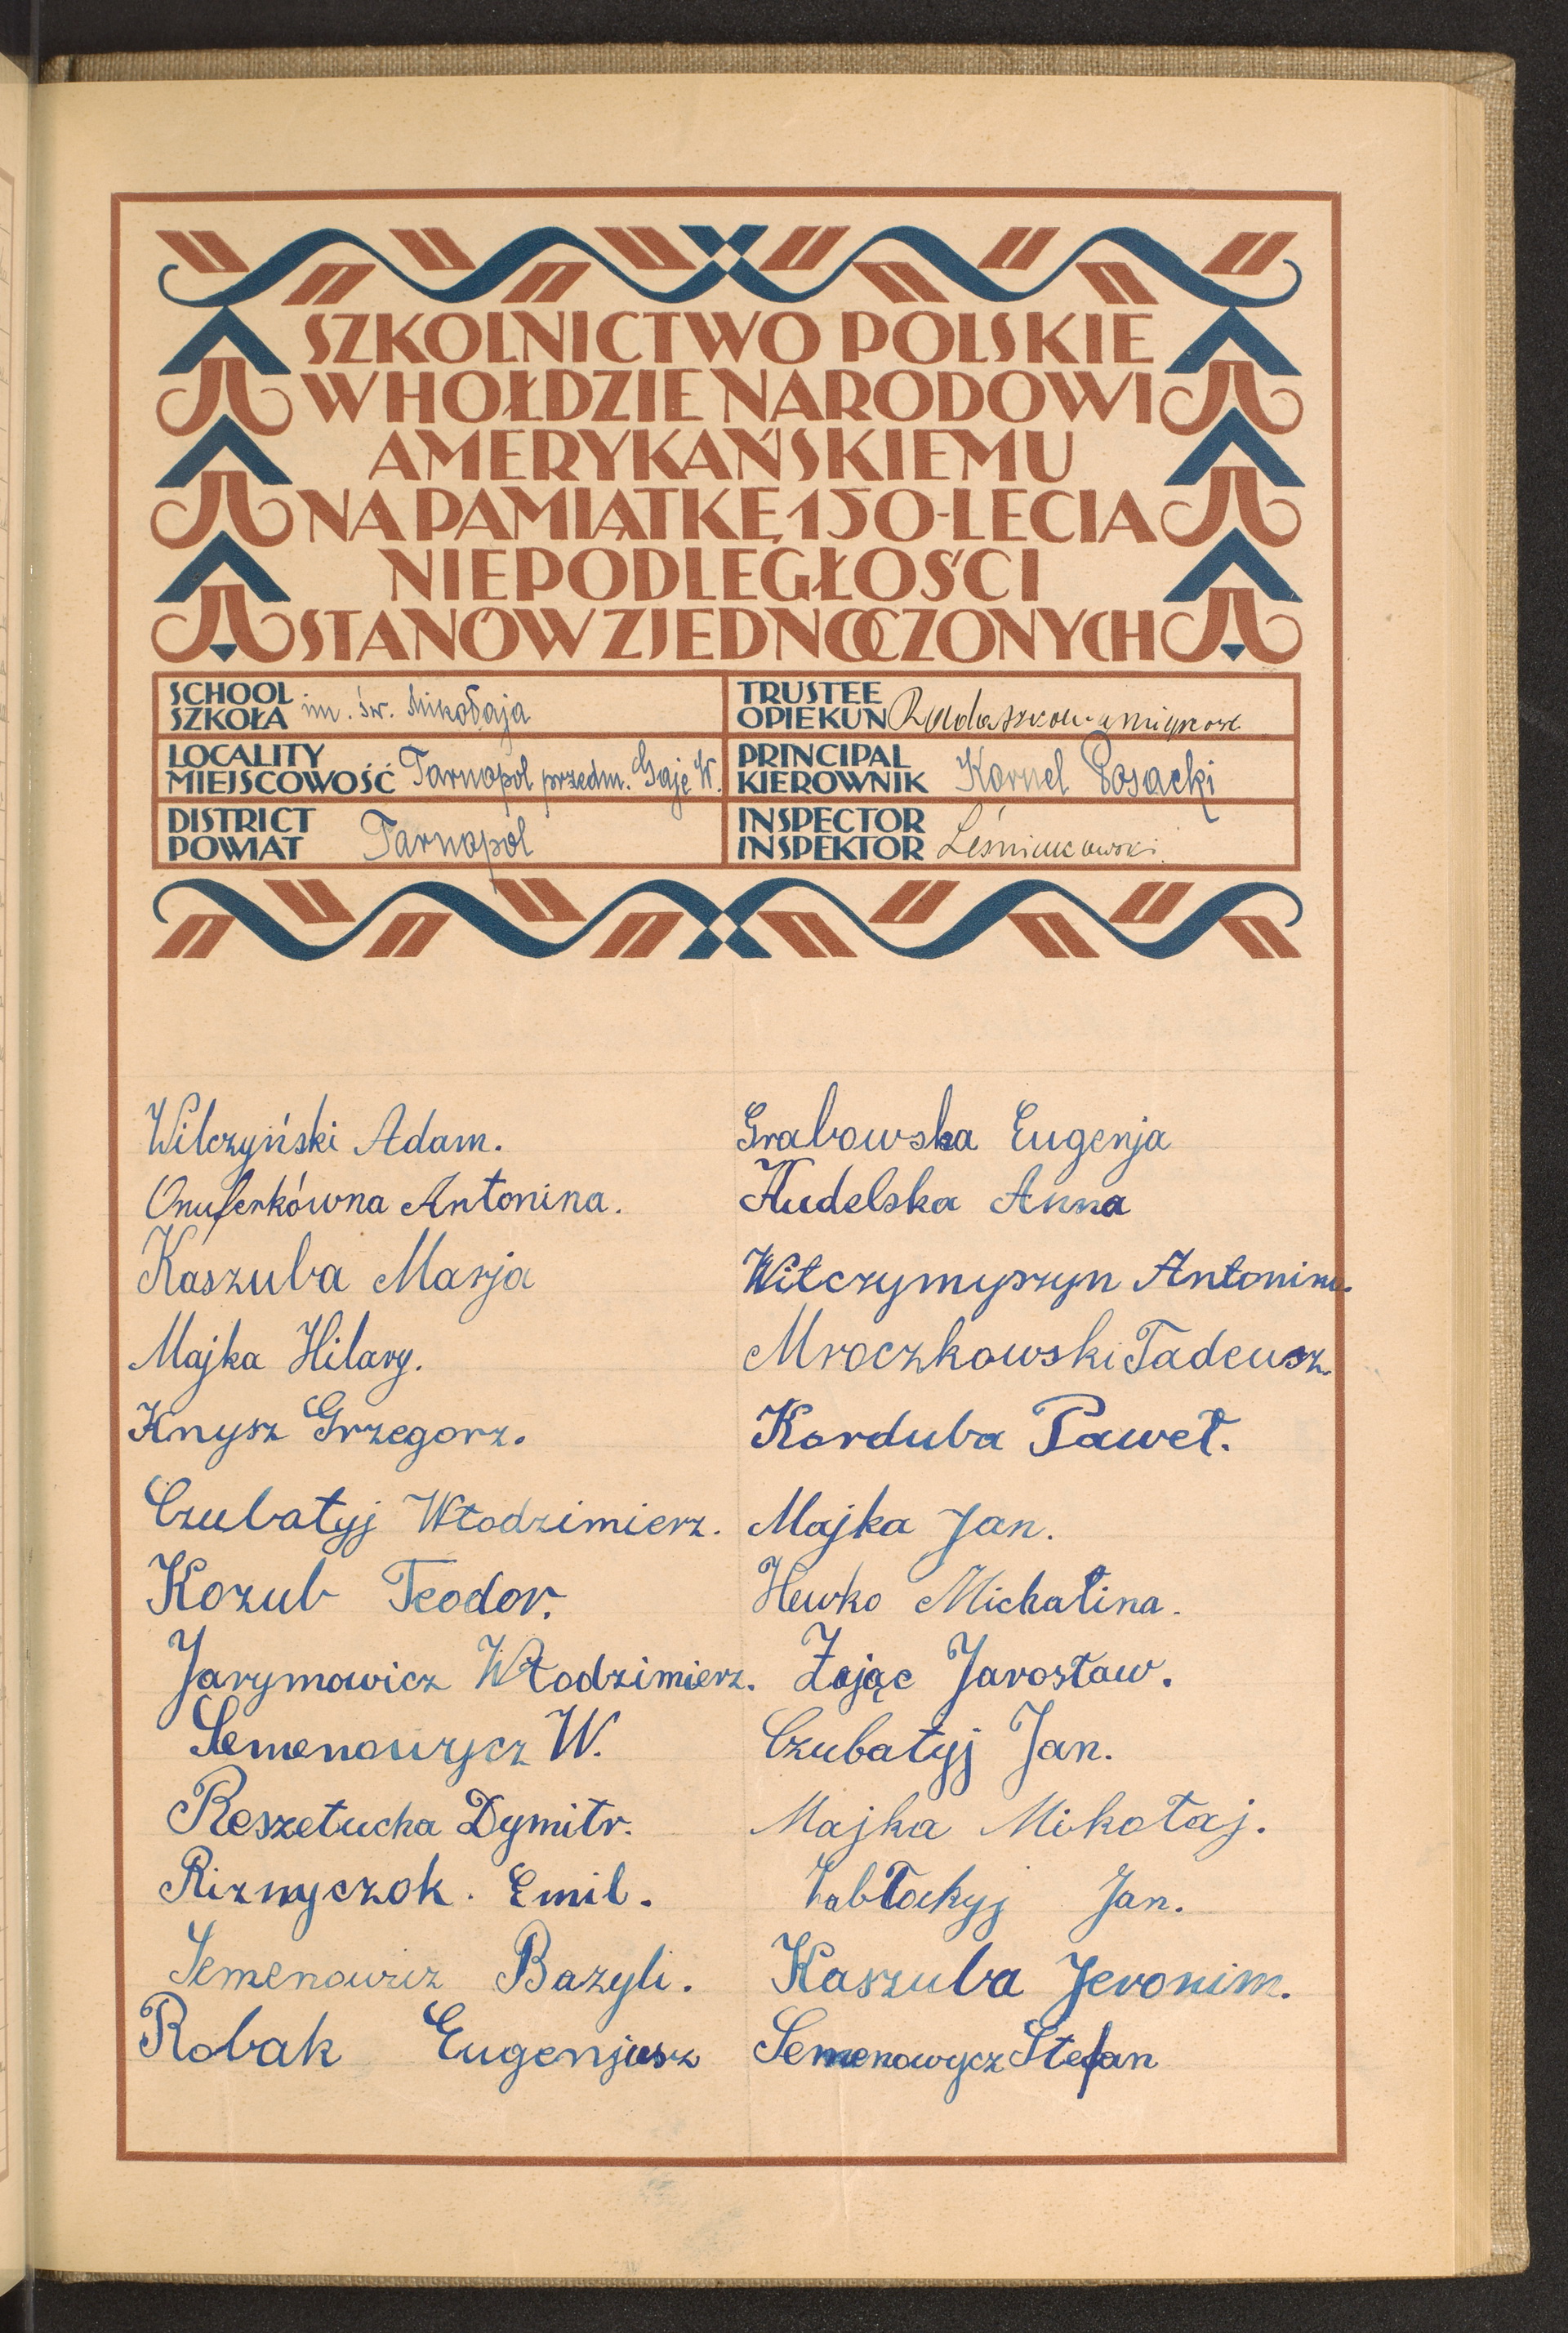 SZKOLNICTWO POLSKIE
W HOŁDZIE NARODOWI
AMERYKAŃSKIEMU
NA PAMIĄTKĘ 150-LECIA
NIEPODLEGŁOŚCI
STANÓW ZJEDNOCZONYCH
SCHOOL
SZKOŁA im. św. Mikołaja
LOCALITY
MIEJSCOWOŚĆ Tarnopol przedm. Gaje W.
DISTRICT
POWIAT Tarnopol
TRUSTEE
OPIEKUN
PRINCIPAL
KIEROWNIK Kornel Posacki
INSPECTOR
INSPEKTOR
Wilczyński Adam.
Onuferkówna Antonina.
Kaszuba Marja
Majka Hilary.
Knysz Grzegorz.
Czubatyj Włodzimierz.
Kozub Teodor.
Jarymowicz Włodzimierz.
Semenowycz W.
Reszetucha Dymitr.
Riznyczok. Emil.
Semenowicz Bazyli.
Robak Eugenjusz
Grabowska Eugenja
Hudelska Anna
Witczymyszyn Antonina.
Mroczkowski Tadeusz.
Korduba Paweł.
Majka Jan.
Hewko Michalina.
Zając Jarosław.
Czubatyj Jan.
Majka Mikołaj.
Zabłockyj Jan.
Kaszuba Jeronim.
Semenowycz Stefan